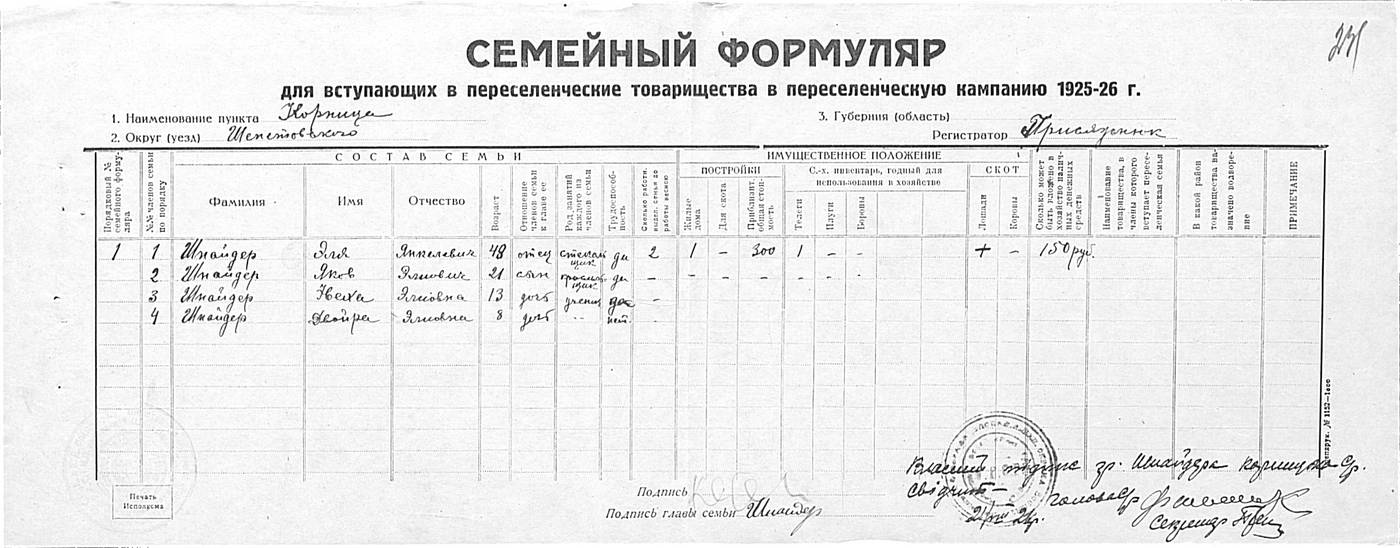 231
СЕМЕЙНЫЙ ФОРМУЛЯР
для вступающих в переселенческие товарищества в переселенческую кампанию 1925-26 г.
1. Наименование пункта Корница
3. Губерния (область)
2. Округ (уезд) Шепетовского
Регистратор Присяжнюк
СОСТАВ СЕМЬИ
ИМУЩЕСТВЕННОЕ ПОЛОЖЕНИЕ
Порядковый № семейного формуляра
№№ членов семьи по порядку
Фамилия
Имя
Отчество
Возраст
Отношение членов семьи к главе ее
Род занятий каждого из членов семьи
Трудоспособность
Сколько работн. выдел. семья до работы весною
ПОСТРОЙКИ
Жилые дома
Для скота
Приблизит. общая стоимость
С.-х. инвентарь, годный для использования в хозяйстве
Телеги
Плуги
Бороны
СКОТ
Лошади
Коровы
Сколько может быть вложено в хозяйство наличных денежных средств
Наименование товарищества, в члены которого вступает переселенческая семья
В какой район товарищества назначено водворение
ПРИМЕЧАНИЕ
1 1 Шнайдер Эля Янкелевич 48 отец стекольщик да 2 1 – 300 1 – – + – 150 руб.
2 Шнайдер Яков Элиович 21 сын да – – – – – – –
3 Шнайдер Ивха Элиовна 13 доч учениц –
4 Шнайдер Двойра Элиовна 8 доч -- нет. –
Печать Исполкома
Подпись
Подпись главы семьи Шнайдер
Власний підпис гр. Шнайдера
свідчить –
Голова С/р
Секретар
№ 1152—1000